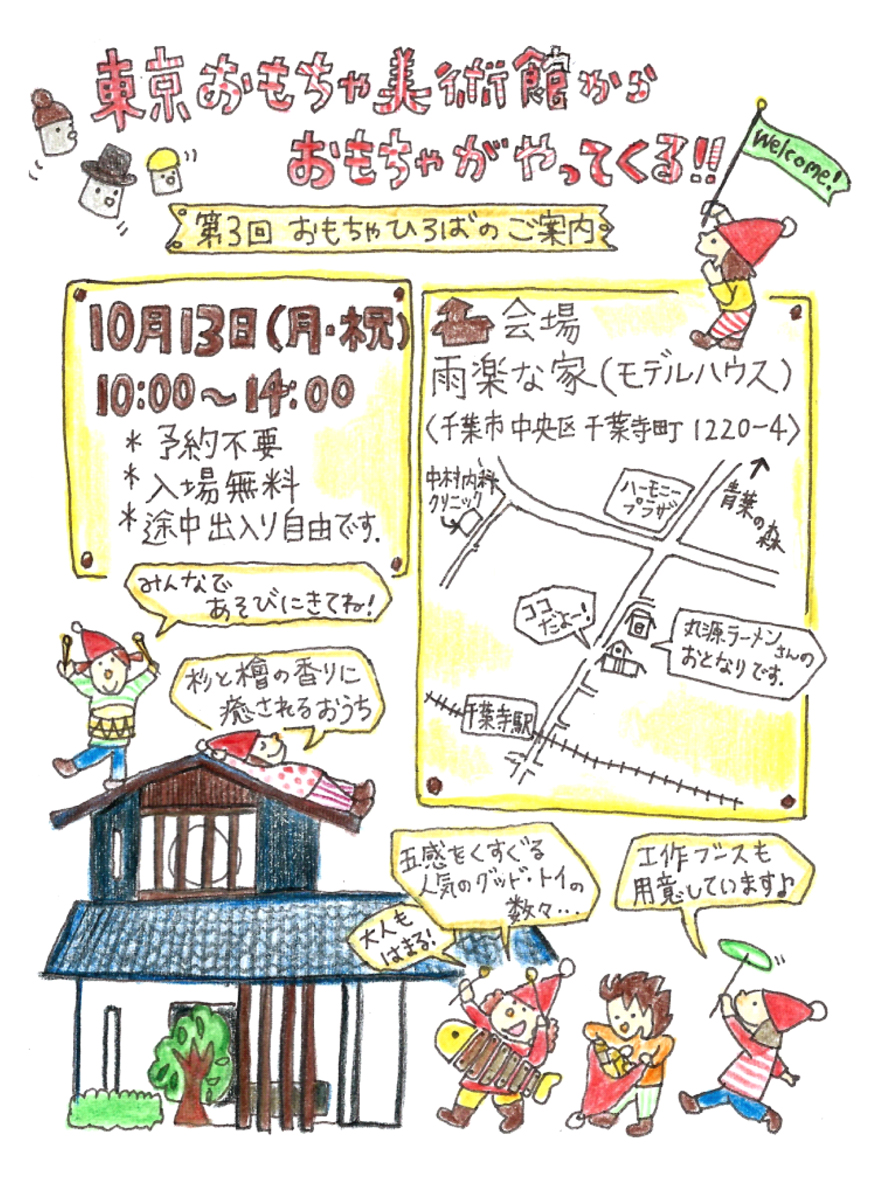 東京おもちゃ美術館から
おもちゃがやってくる!!
Welcome!
第3回 おもちゃひろばのご案内
10月13日(月・祝)
10:00～14:00
＊予約不要
＊入場無料
＊途中出入り自由です.
会場
雨楽な家(モデルハウス)
〈千葉市中央区千葉寺町1220-4〉
中村内科
クリニック
ハーモニー
プラザ
青葉の森
ココ
だよー!
丸源ラーメンさんの
おとなりです.
千葉寺駅
みんなで
あそびにきてね!
杉と檜の香りに
癒されるおうち
五感をくすぐる
人気のグッド・トイの
数々…
大人も
はまる!
工作ブースも
用意しています♪